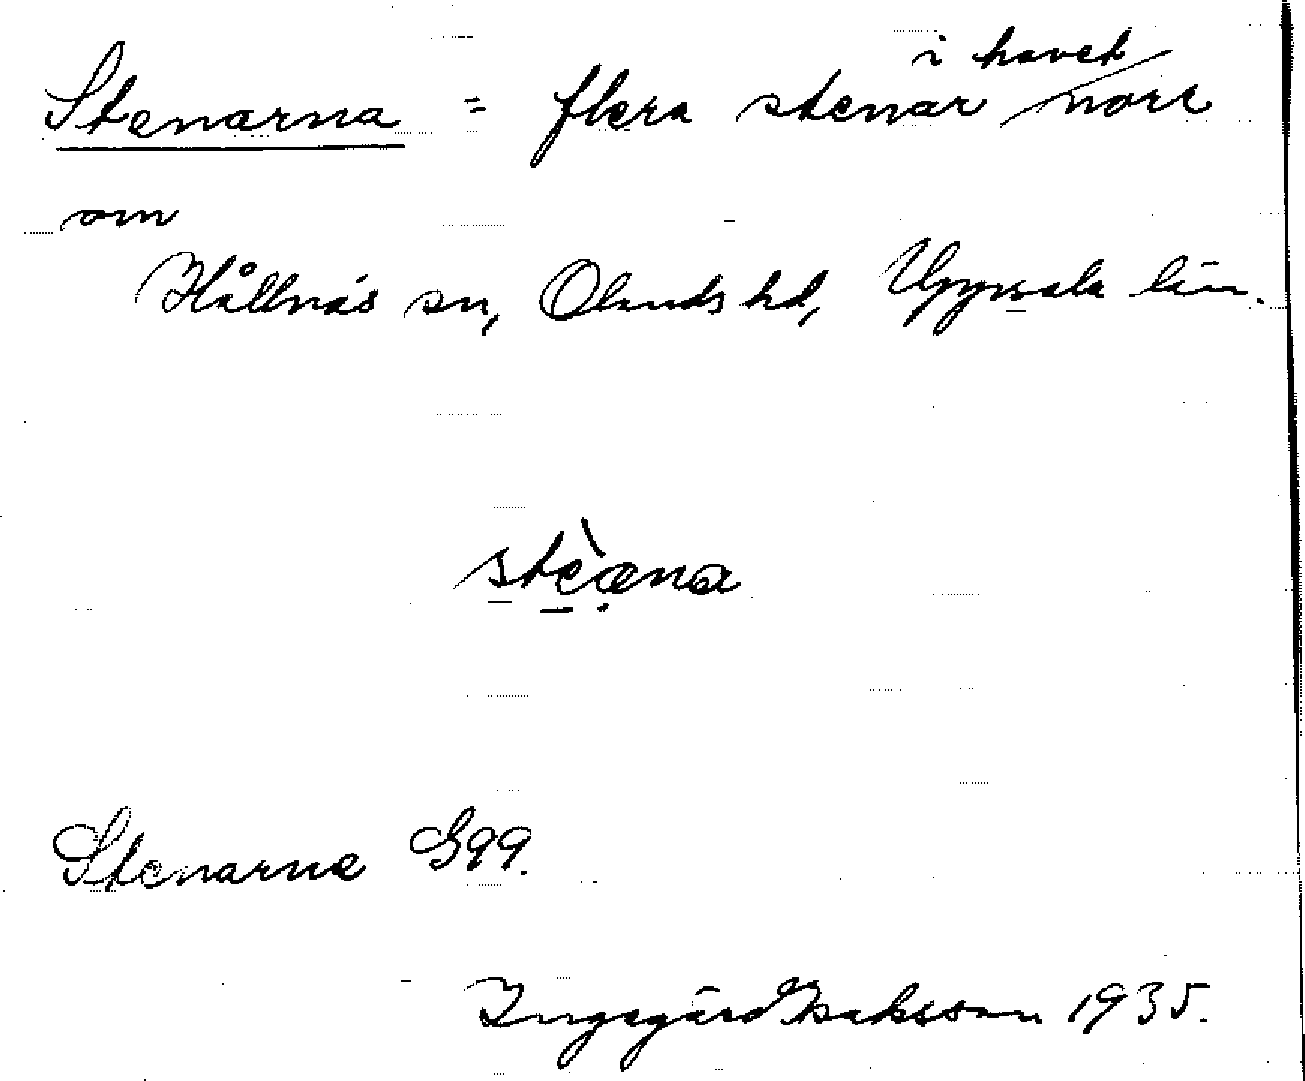 Stenarna = flera stenar i havet norr
om
Hållnäs sn, Olands hd, Uppsala län.
stèæna
Stenarne S99.
Ingegärd Isaksson 1935.